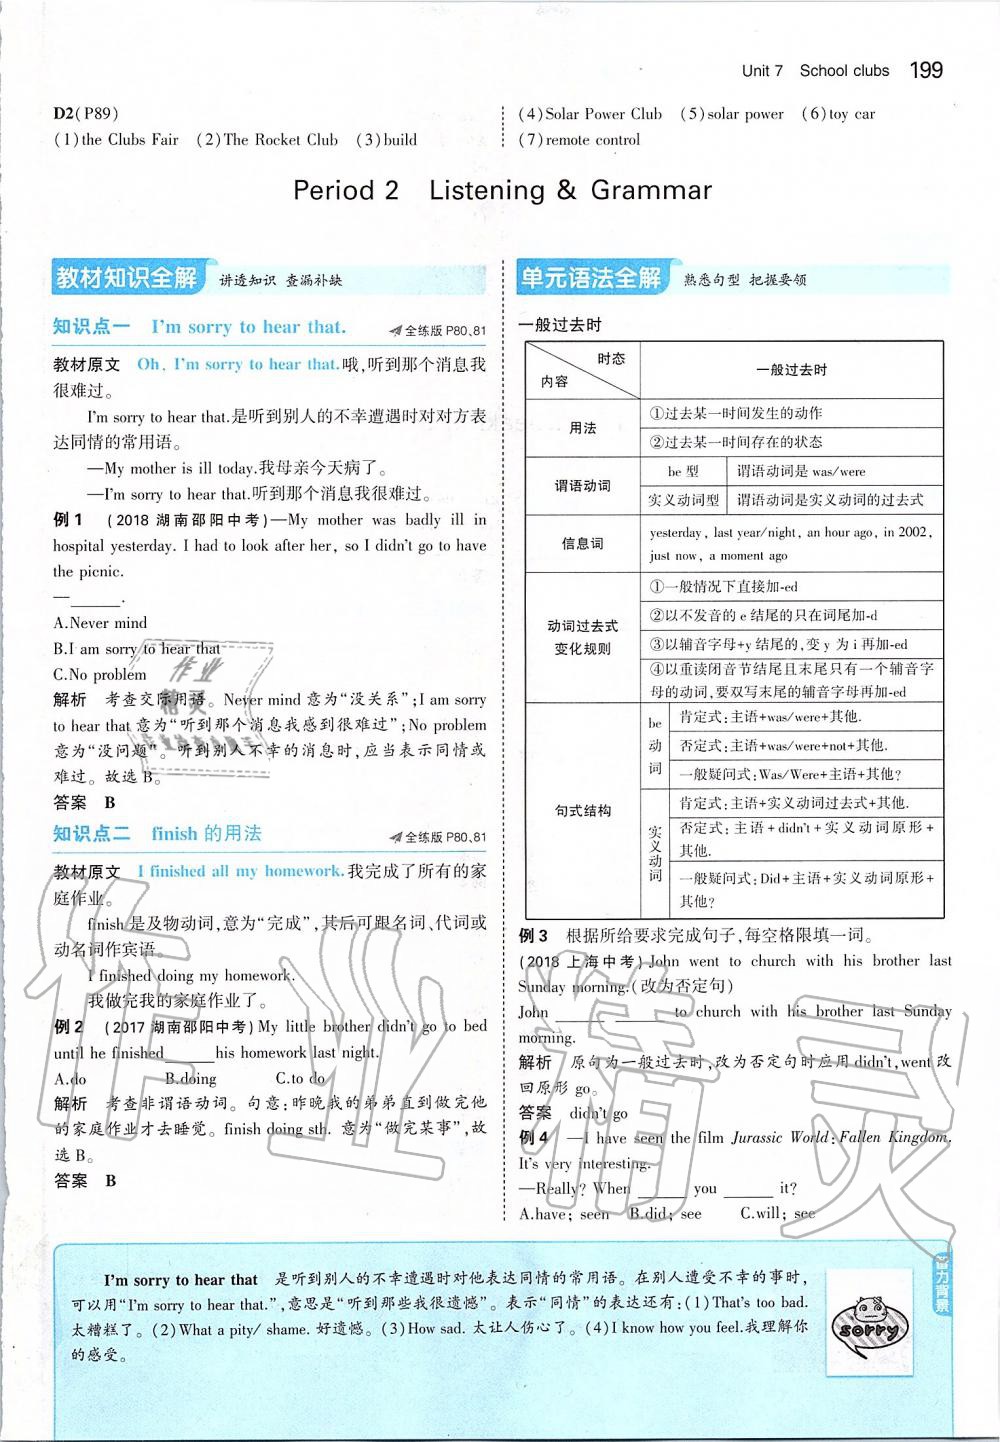 Unit 7 School clubs 199
D2(P89)
(1)the Clubs Fair (2)The Rocket Club (3)build
(4)Solar Power Club (5)solar power (6)toy car
(7)remote control
Period 2 Listening & Grammar
教材知识全解 讲透知识 查漏补缺
知识点一 I'm sorry to hear that. 全练版 P80、81
教材原文 Oh, I'm sorry to hear that.哦,听到那个消息我
很难过。
I'm sorry to hear that.是听到别人的不幸遭遇时对对方表
达同情的常用语。
—My mother is ill today.我母亲今天病了。
—I'm sorry to hear that.听到那个消息我很难过。
例1 (2018 湖南邵阳中考)—My mother was badly ill in
hospital yesterday. I had to look after her, so I didn't go to have
the picnic.
—______.
A.Never mind
B.I am sorry to hear that
C.No problem
解析 考查交际用语。Never mind 意为“没关系”;I am sorry
to hear that 意为“听到那个消息我感到很难过”;No problem
意为“没问题”。听到别人不幸的消息时,应当表示同情或
难过。故选 B。
答案 B
知识点二 finish 的用法 全练版 P80、81
教材原文 I finished all my homework.我完成了所有的家
庭作业。
finish 是及物动词,意为“完成”,其后可跟名词、代词或
动名词作宾语。
I finished doing my homework.
我做完我的家庭作业了。
例2 (2017 湖南邵阳中考) My little brother didn't go to bed
until he finished______his homework last night.
A.do B.doing C.to do
解析 考查非谓语动词。句意:昨晚我的弟弟直到做完他
的家庭作业才去睡觉。finish doing sth. 意为“做完某事”,故
选 B。
答案 B
单元语法全解 熟悉句型 把握要领
一般过去时
时态
内容
一般过去时
用法
①过去某一时间发生的动作
②过去某一时间存在的状态
谓语动词
be 型 谓语动词是 was/were
实义动词型 谓语动词是实义动词的过去式
信息词
yesterday, last year/night, an hour ago, in 2002,
just now, a moment ago
动词过去式
变化规则
①一般情况下直接加-ed
②以不发音的 e 结尾的只在词尾加-d
③以辅音字母+y 结尾的,变 y 为 i 再加-ed
④以重读闭音节结尾且末尾只有一个辅音字
母的动词,要双写末尾的辅音字母再加-ed
句式结构
be
动
词
肯定式:主语+was/were+其他.
否定式:主语+was/were+not+其他.
一般疑问式:Was/Were+主语+其他?
实
义
动
词
肯定式:主语+实义动词过去式+其他.
否定式:主语+didn't+实义动词原形+
其他.
一般疑问式:Did+主语+实义动词原形+
其他?
例3 根据所给要求完成句子,每空格限填一词。
(2018 上海中考) John went to church with his brother last
Sunday morning.(改为否定句)
John ______ ______ to church with his brother last Sunday
morning.
解析 原句为一般过去时,改为否定句时应用 didn't,went 改
回原形 go。
答案 didn't go
例4 —I have seen the film Jurassic World: Fallen Kingdom.
It's very interesting.
—Really? When ______ you ______ it?
A.have; seen B.did; see C.will; see
I'm sorry to hear that 是听到别人的不幸遭遇时对他表达同情的常用语。在别人遭受不幸的事时,
可以用“I'm sorry to hear that.”,意思是“听到那些我很遗憾”。表示“同情”的表达还有:(1)That's too bad.
太糟糕了。(2)What a pity/ shame. 好遗憾。(3)How sad. 太让人伤心了。(4)I know how you feel.我理解你
的感受。
sorry
力背景
作业
精灵
作业精灵